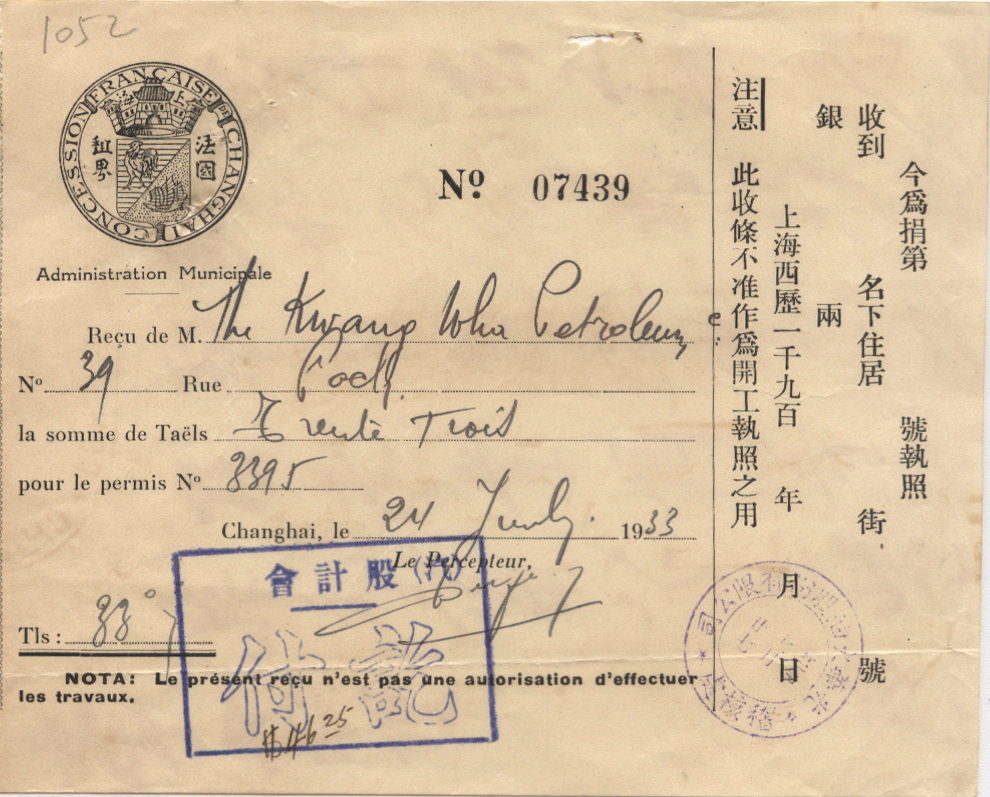 1052
CONCESSION FRANÇAISE CHANGHAI
法國
租界
Nº 07439
Administration Municipale
Reçu de M. The Kwang Wha Petroleum
Nº 39 Rue
la somme de Taëls Trente Trois
pour le permis Nº 3395
Changhai, le 24 July. 1933
Le Percepteur,
會計股(汽)
付訖
Tls: 33
$46.25
NOTA: Le présent reçu n'est pas une autorisation d'effectuer
les travaux.
今爲捐第 號執照
收到 名下住居 街 號
銀 兩
上海西歷一千九百 年 月 日
注意 此收條不准作爲開工執照之用